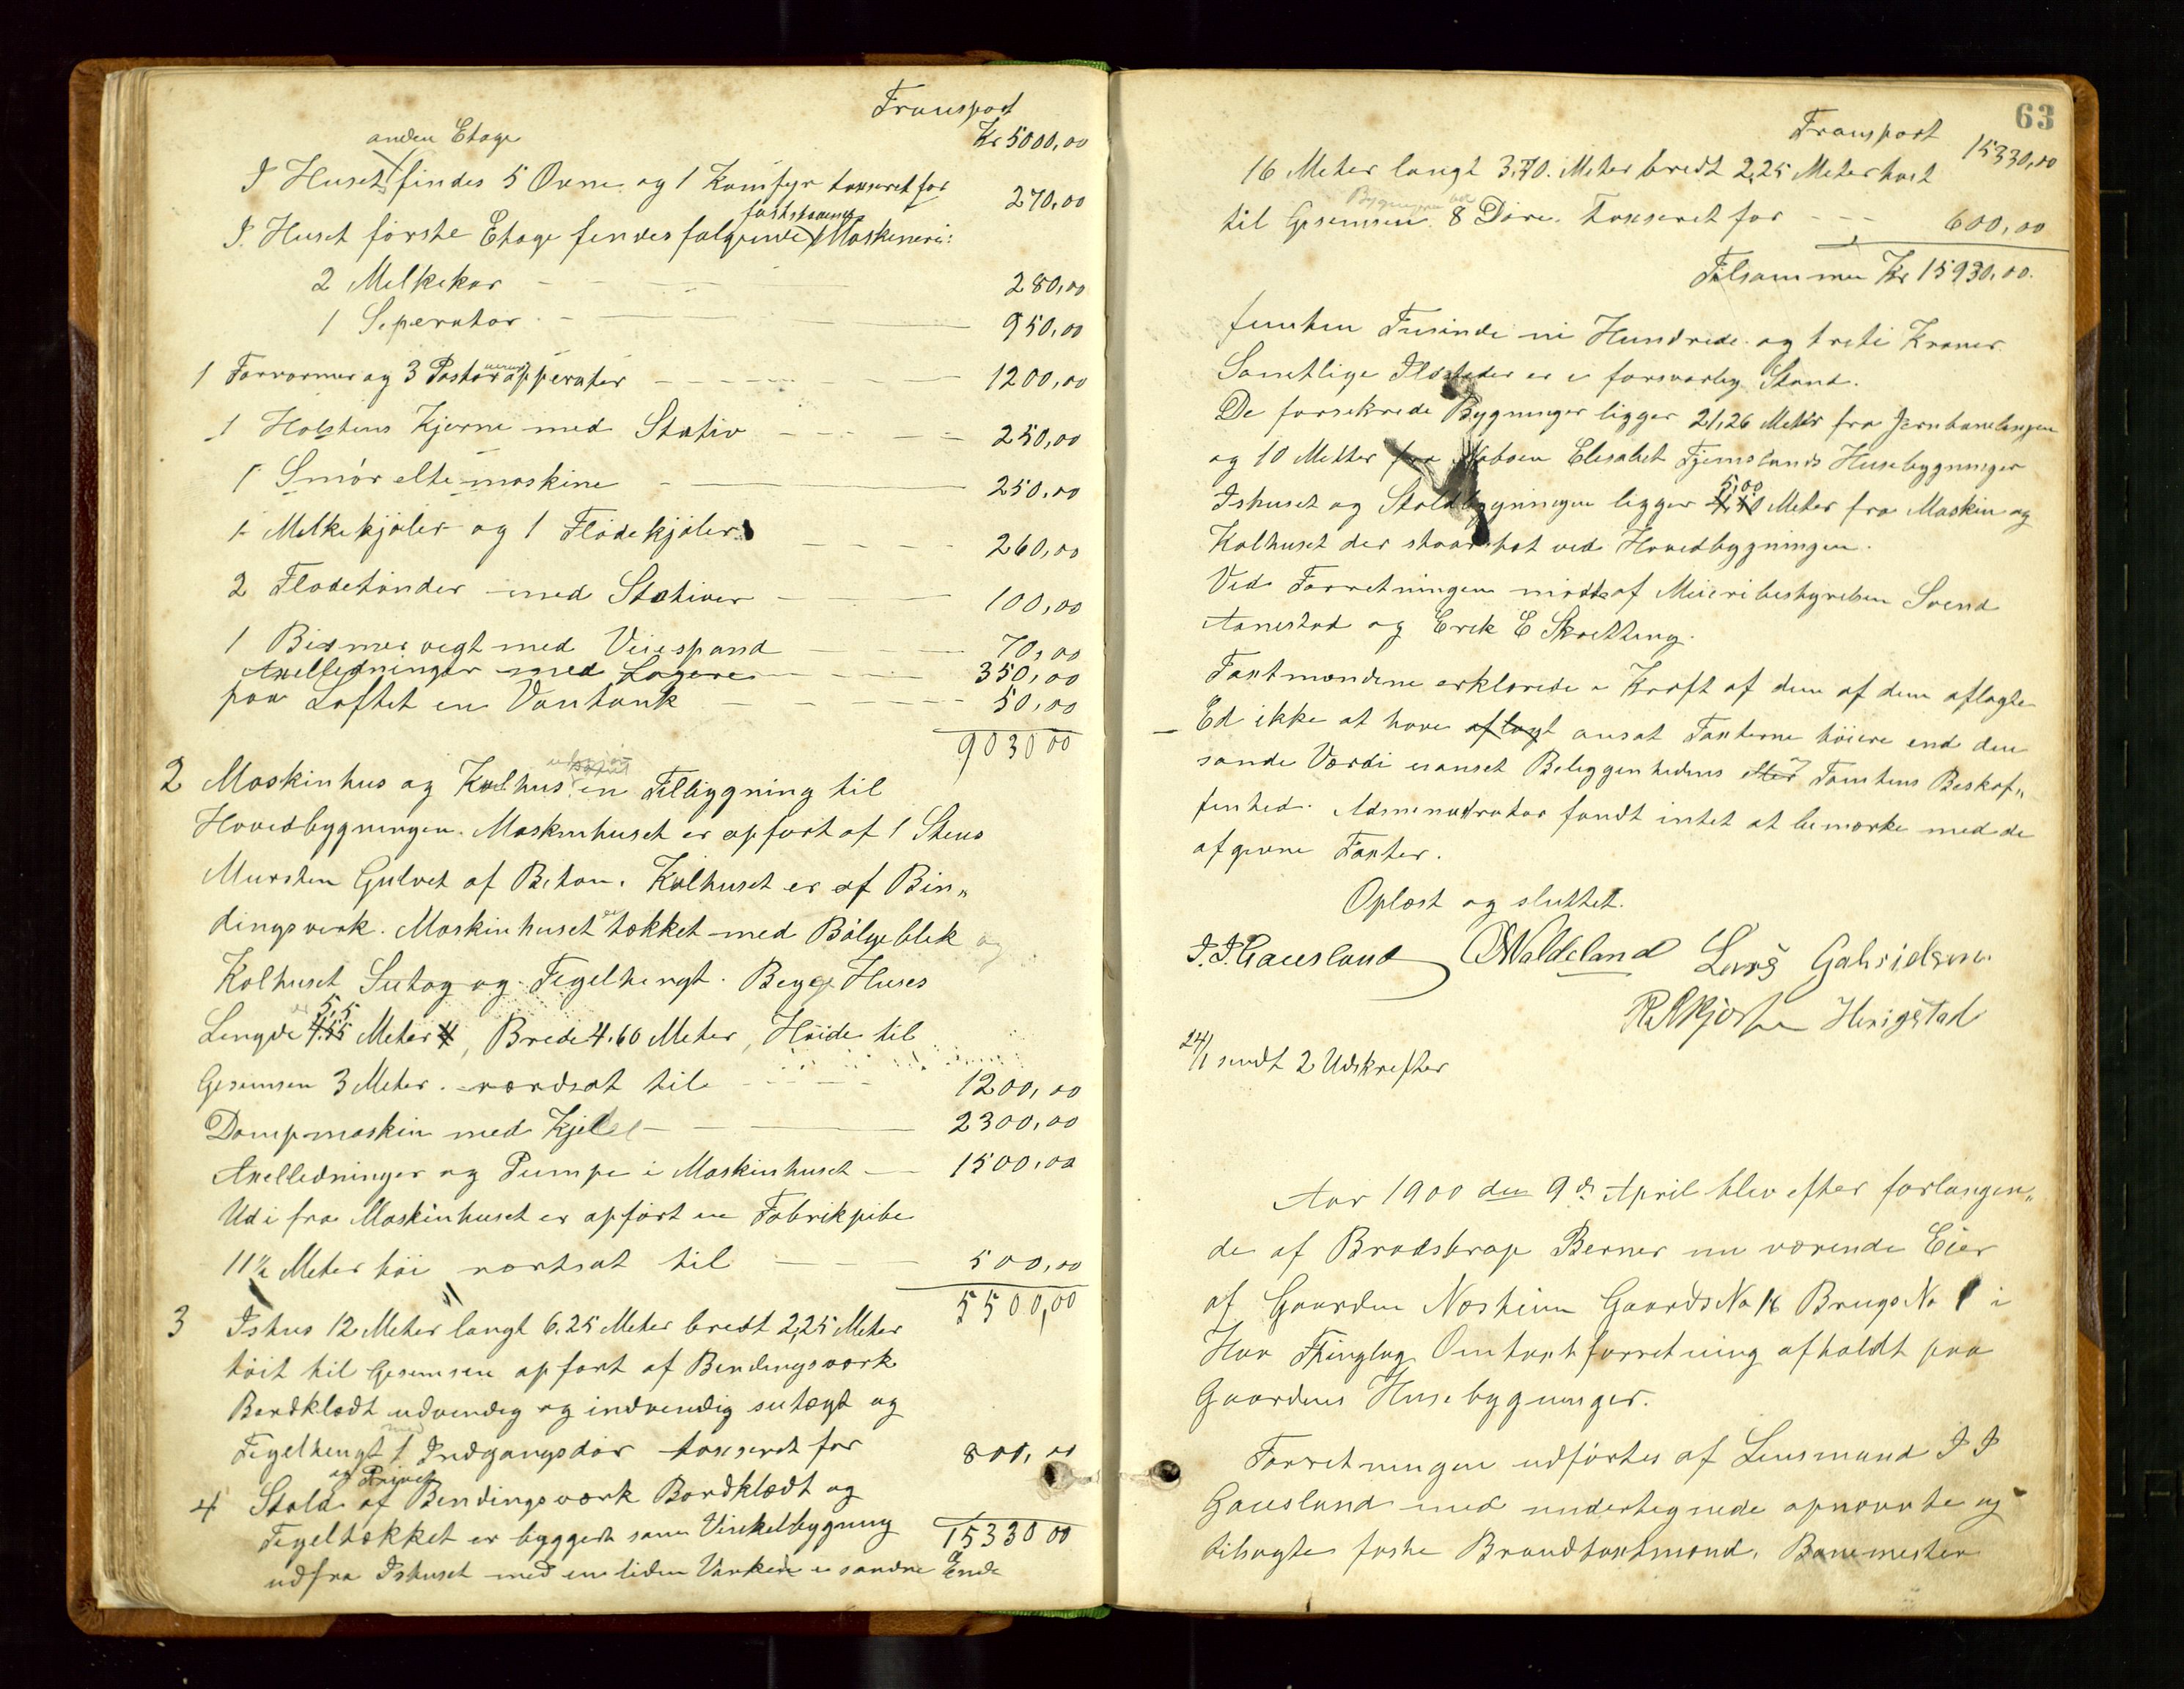 Transport
Kr 5000,00
anden Etage
I Huset findes 5 Ovne og 1 Komfyr taxseret for 270,00
fastskruede
I Huset første Etage findes følgende Maskineri:
2 Melkekar 280,00
1 Seperator 950,00
1 Forvarmer og 3 Pastor apperater 1200,00
1 Holstens Kjerne med Stativ 250,00
1 Smør elte maskine 250,00
1 Melkekjøler og 1 Flødekjøler 260,00
2 Flødetønder med Stativer 100,00
1 Bismer vegt med Veiespand 70,00
Axelledninger med Lagere 350,00
paa Loftet en Vantank 50,00
9030 00
2 Maskinhus og Kulhus en Tilbygning til
Hovedbygningen. Maskinhuset er opført af 1 Stens
Mursten Gulvet af Beton. Kulhuset er af Bin„
dingsverk. Maskinhuset er tækket med Bølgeblik og
Kolhuset Sutag og Tegelhengt. Begge Huses
5,5
Lengde 4.55 Meter, Brede 4.60 Meter, Høide til
Gesemsen 3 Meter. værdsat til 1200,00
Dampmaskin med Kjelel 2300,00
Axelledninger og Pumpe i Maskinhuset 1500,00
Ud i fra Maskinhuset er opført en Fabrikpibe
11½ Meter høi værtsat til 500,00
5500,00
3 Ishus 12 Meter langt 6,25 Meter bredt 2,25 Meter
høit til Gesemsen opført af Bindingsværk
Bordklædt udvendig og indvendig sutagt og
med
Tegelhengt 1 Indgangsdør taxseret for 800,00
og Privet
4 Stald af Bendingsværk Bordklædt og
Tegeltækket er bygget som Vinkelbygning 15330 00
udfra Ishuset med en liden Vinkel i søndre Ende
63
Transport 15330,00
16 Meter langt 3,70. Meter bredt 2,25 Meter høit
Bygningen har
til Gesemsen 8 Døre. Taxseret for 600,00
Tilsammen Kr 15930,00.
femten Tusinde ni Hundrede og treti Kroner
Samtlige Ildsteder er i forsvarlig Stand.
De forsikrede Bygninger ligger 21,26 Meter fra Jernbanelinjen
og 10 Metter fra Naboen Elisabet Tjemslands Husebygninger
5,00
Ishuset og Staldbygningen ligger 4,50 Meter fra Maskin og
Kolhuset der staar tæt ved Hovedbygningen.
Ved Forretningen mødte af Meieribestyrelsen Svend
Aanestad og Erik E Skretting.
Taxtmændene erklærede i Kraft af den af dem aflagte
Ed ikke at have aflagt ansat Taxterne høiere end den
sande Værdi uanset Beliggenhedens eller Tomtens Beskaf„
fenhed. Adminestrator fandt intet at bemærke med de
afgivne Taxter.
Oplæst og sluttet.
I. I. Gausland O Waldeland Lars Gabrielsen
R. Kjosse Herigstad
24/1 sendt 2 Udskrefter
Aar 1900 den 9de April blev efter forlangen„
de af Brødskrap Berner nu værende Eier
af Gaarden Nærheim Gaards No 18 Brugs No 1 i
Haa Thinglag Omtaxtforretning afholdt paa
Gaardens Husebygninger.
Forretningen udførtes af Lensmand I I
Gausland med undertegnede opnævnte og
tilsagte faste Brandtaxtmænd, Banemester